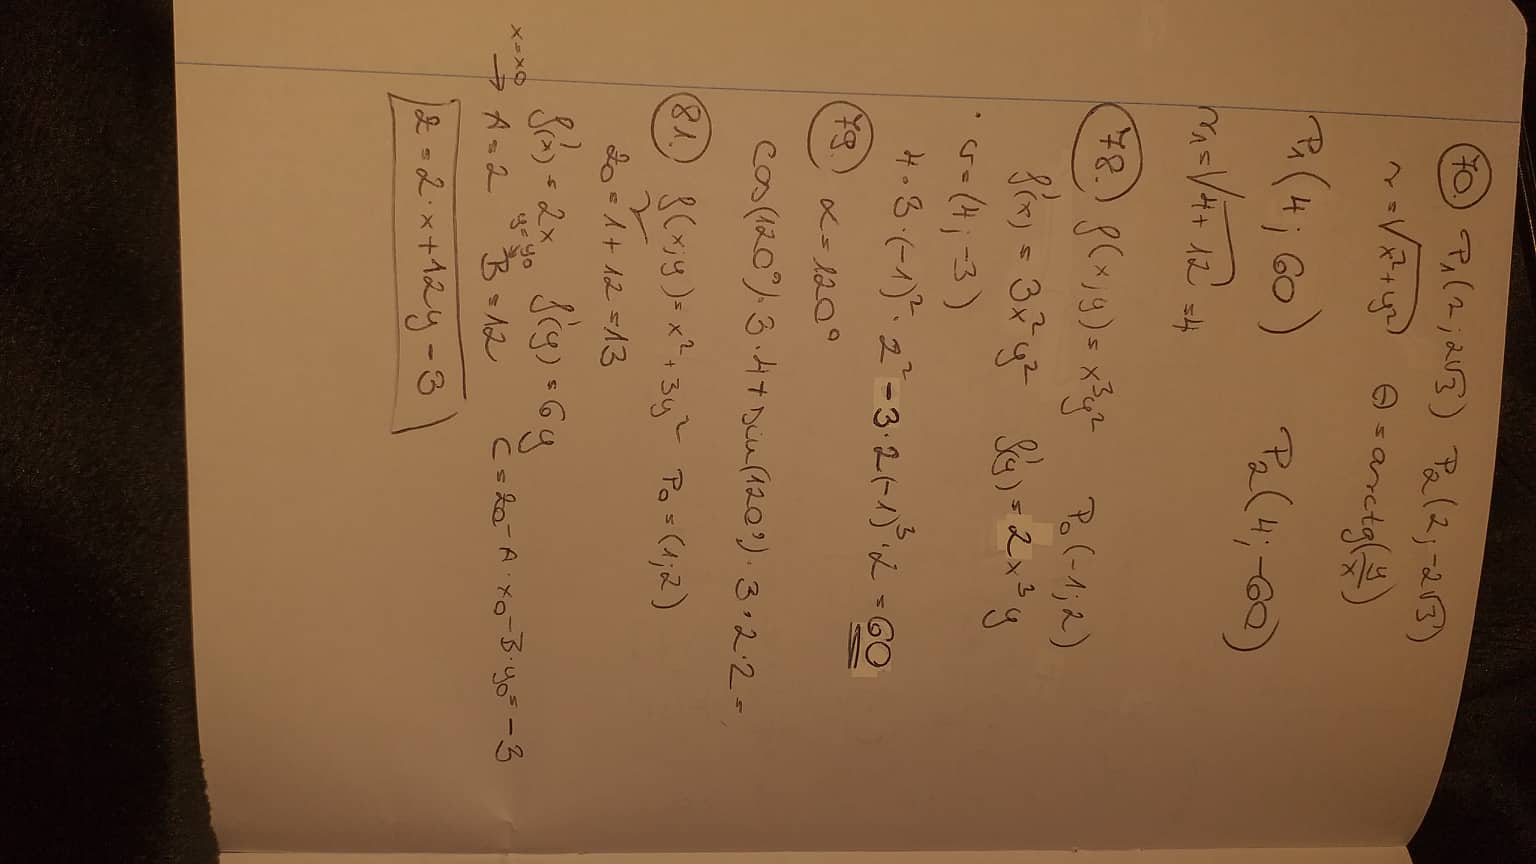 70. P1(2; 2√3) P2(2; -2√3)
r = √x²+y² Θ = arctg(y/x)
P1(4; 60) P2(4; -60)
r1 = √4+12 = 4
78. f(x;y) = x³y² P0(-1; 2)
f'(x) = 3x²y² f'(y) = 2x³y
v = (4; -3)
4·3·(-1)²·2² -3·2(-1)³·2 = 60
79. α = 120°
cos(120°)·3·4 + sin(120°)·3·2·2 =
81. f(x;y) = x² + 3y² P0 = (1; 2)
z0 = 1 + 12 = 13
f'(x) = 2x f'(y) = 6y
x = x0 y = y0
→ A = 2 B = 12 C = z0 - A·x0 - B·y0 = -3
z = 2·x + 12y - 3